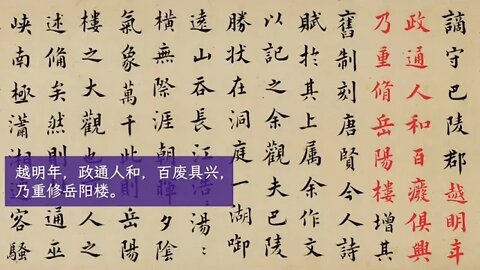 謫守巴陵郡越明年
政通人和百癈俱興
乃重脩岳陽樓增其
舊制刻唐賢今人詩
賦於其上屬余作文
以記之余觀夫巴陵
勝狀在洞庭一湖啣
遠山吞長江浩〻湯〻
橫無際涯朝暉夕陰
氣象萬千此則岳陽
樓之大觀也人之
述備矣然則通巫
峽南極瀟客騷
越明年，政通人和，百废具兴，
乃重修岳阳楼。